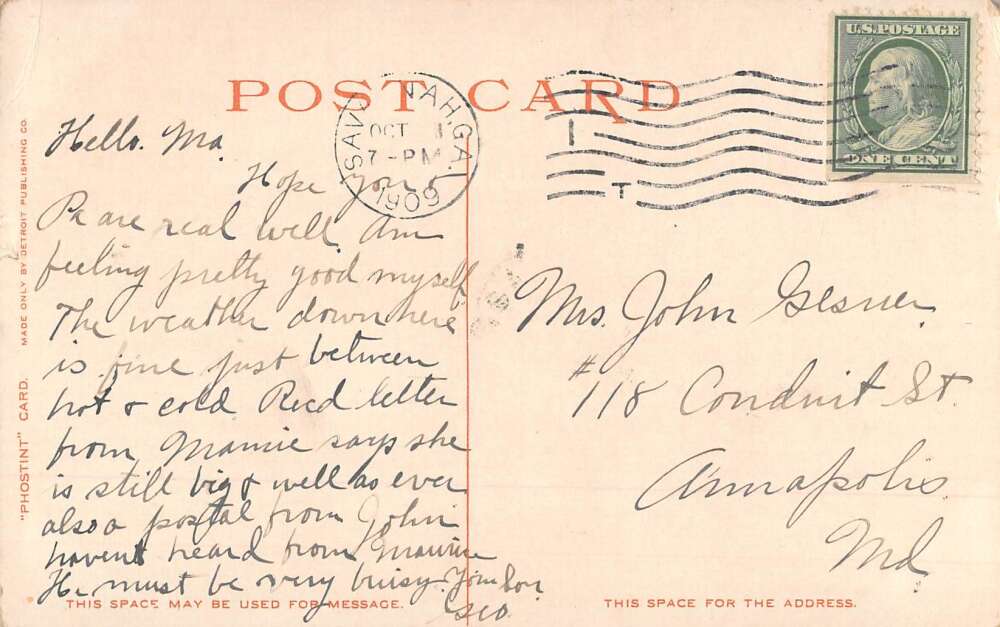 POST CARD
U.S. POSTAGE
ONE CENT
SAVANNAH, GA.
OCT 1
7 - PM
1909
Hello. Ma
Hope you &
Pa are real well. Am
feeling pretty good myself,
The weather down here
is fine just between
hot & cold Recd letter
from Mamie says she
is still big & well as ever
also a postal from John
havent heard from Maurice
He must be very busy. Your Son
Geo.
Mrs. John Gesner.
#118 Conduit St.
Annapolis.
Md
THIS SPACE MAY BE USED FOR MESSAGE.
THIS SPACE FOR THE ADDRESS.
"PHOSTINT" CARD. MADE ONLY BY DETROIT PUBLISHING CO.